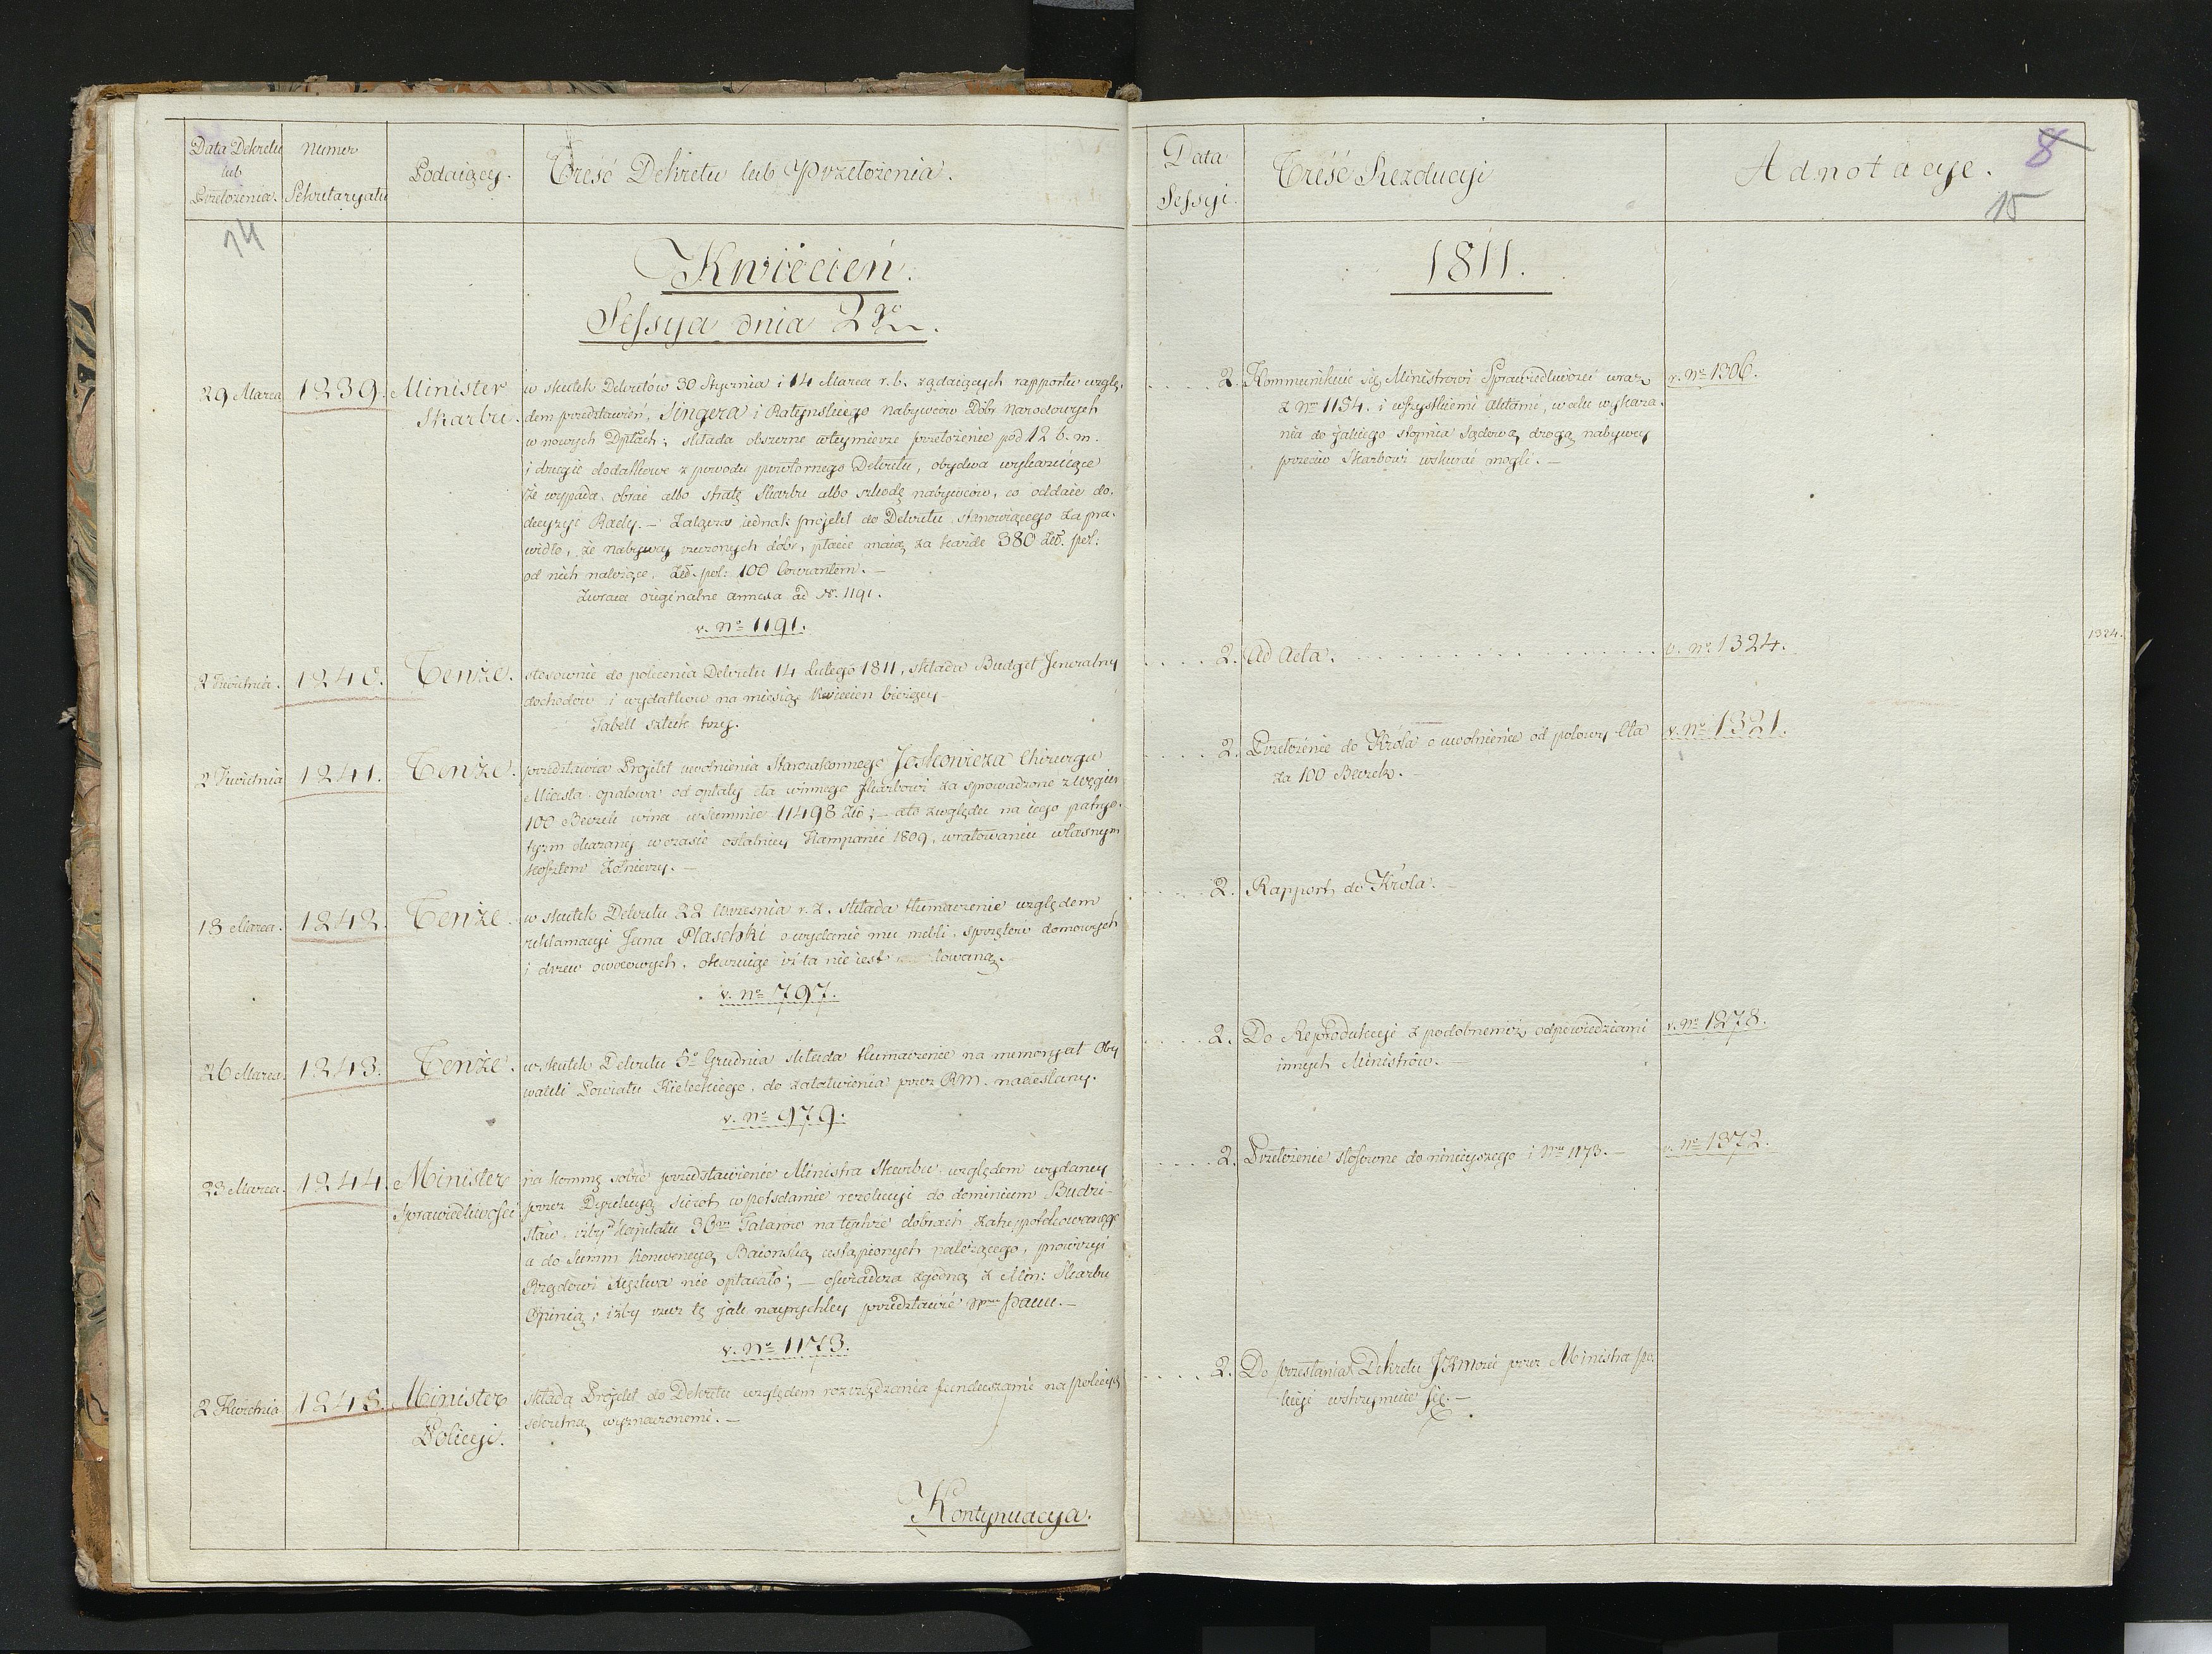 Data Dekretu
lub
Przełożenia.
Numer
Sekretaryatu
Podaiący.
Treść Dekretu lub Przełożenia.
14
Kwiecień.
Sessya dnia 2go
29 Marca
1239.
Minister
Skarbu.
w skutek Dekretów 30 Stycznia i 14 Marca r. b. żądaiących rapportu wzglę-
dem przedstawień, Singera i Ratynskiego nabywców Dóbr Narodowych
w nowych Dpttach; składa obszerne wteymierze przełożenie pod 12 b. m.
i drugie dodatkowe z powodu powtornego Dekretu, obydwa wykazuiące
że wypada, obrać albo stratę Skarbu albo szkodę nabywców, co oddaie do.
decyzyi Rady. – Załącza iednak projekt do Dekretu, stanowiącego za pra-
widło, że nabywcy rzeczonych dóbr, płacić maią za każde 380 Zł. pol:
od nich należące, Zł. pol: 100 Courantem. –
Zwraca originalne annexa ad N. 1191.
v. No 1191.
2 Kwietnia.
1240.
Tenże.
stosownie do polecenia Dekretu 14 Lutego 1811, składa Budget Jeneralny
dochodow i wydatkow na miesiąc Kwiecien bieżący –
Tabell sztuk trzy.
2 Kwietnia
1241.
Tenże.
przedstawia Projekt uwolnienia Starozakonnego Joskowicza Chirurga
Miasta opatowa od opłaty cła winnego Skarbowi za sprowadzone z Węgier
100 Beczek wina w summie 11498 Zło; – ato zwględu na iego patryo-
tyzm okazany w czasie ostatniey Kampanii 1809, w ratowaniu własnym
kosztem Żołnierzy. –
13 Marca.
1242.
Tenże.
w skutek Dekretu 22 Września r. z. składa tłumaczenie względem
reklamacyi Jana Plaschki o wydanie mu mebli, sprzętów domowych
i drzew owocowych, okazuiąc iż ta nie iest
v. No 797.
26 Marca.
1243.
Tenże.
w skutek Dekretu 5o Grudnia składa tłumaczenie na memoryał Oby
wateli Powiatu Kieleckiego, do załatwienia przez RM. nadesłany.
v. No 979.
23 Marca.
1244.
Minister
Sprawiedliwości
na kommę sobie przedstawienie Ministra Skarbu względem wydaney
przez Dyrekcyą Sierot w Potsdamie rezolucyi do dominium Budzi-
sław, iżby Kapitału Talarów na tychże dobrach zahyppotekowanego
a do Summ Konwencyą Baiońską ustąpionych należącego, prowizyi
Rządowi Xięztwa nie opłacało; – oświadcza zgodną z Min: Skarbu
Opinią; iżby rzecz tę jak nayrychley przedstawić Panu. –
v. No 1173.
2 Kwietnia
1245.
Minister
Policyi.
składa Projekt do Dekretu względem rozrządzania funduszami na policyą
sekretną wyznaczonemi. –
Kontynuacya.
Data
Sessyi.
Treść Rezolucyi
Adnotacye.
8
15
1811.
2. Kommunikuie się Ministrowi Sprawiedliwości wraz
z No 1154. i wszystkiemi aktami, w celu wykaza-
nia do jakiego stopnia sądową drogą nabywcy
przeciw Skarbowi wskurać mogli. –
v. No 1306.
2. Ad Acta.
v. No 1324.
1324.
2. Przełożenie do Króla o uwolnienie od połowy Cła
za 100 Beczek. –
v. No 1321.
2. Rapport do Króla. –
2. Do Reprodukcyi z podobnemiż odpowiedziami
innych Ministrów. –
v. No 1278.
2. Przełożenie stosowne do ninieyszego i No 1173. –
v. No 1372.
2. Do przesłania Dekretu przez Ministra po-
licyi wstrzymuie się. –